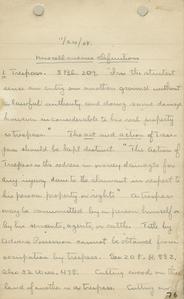 11/20/08.
Miscellaneous Definitions
1 Trespass. 3 Bl. 209. "In the strictest
sense an entry on another's ground without
a lawful authority and doing some damage
however inconsiderable to his real property
is trespass." The act and action of Tres-
pass should be kept distinct. "The Action of
Trespass is the redress in money damages for
any injury done to the claimant in respect to
his person property or rights" A trespass
may be committed by a person himself or
by his servants, agents, or cattle. Title by
Adverse Possession cannot be obtained from
occupation by trespass. See 20 F. H. 882,
Also 22 Wess. 438. Cutting wood on the
land of another is a trespass. Cutting